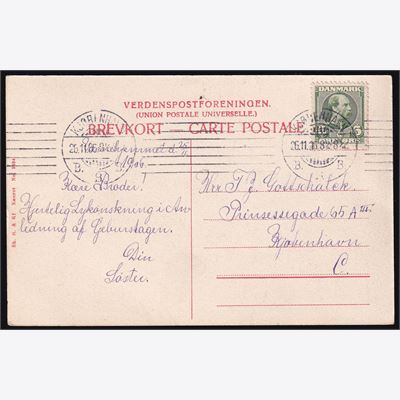 VERDENSPOSTFORENINGEN.
(UNION POSTALE UNIVERSELLE.)
BREVKORT CARTE POSTALE
DANMARK
5
KJØBENHAVN
26.11.06.8
B.
B.
KJØBENHAVN
26.11.06.8
B.
B.
1906.
Kære Broder.
Hjertelig Lykønskning i An-
ledning af Geburtsdagen.
Din
Søster.
Hrr
Gottschalck
Prinsessegade 65 A
Kjøbenhavn
C.